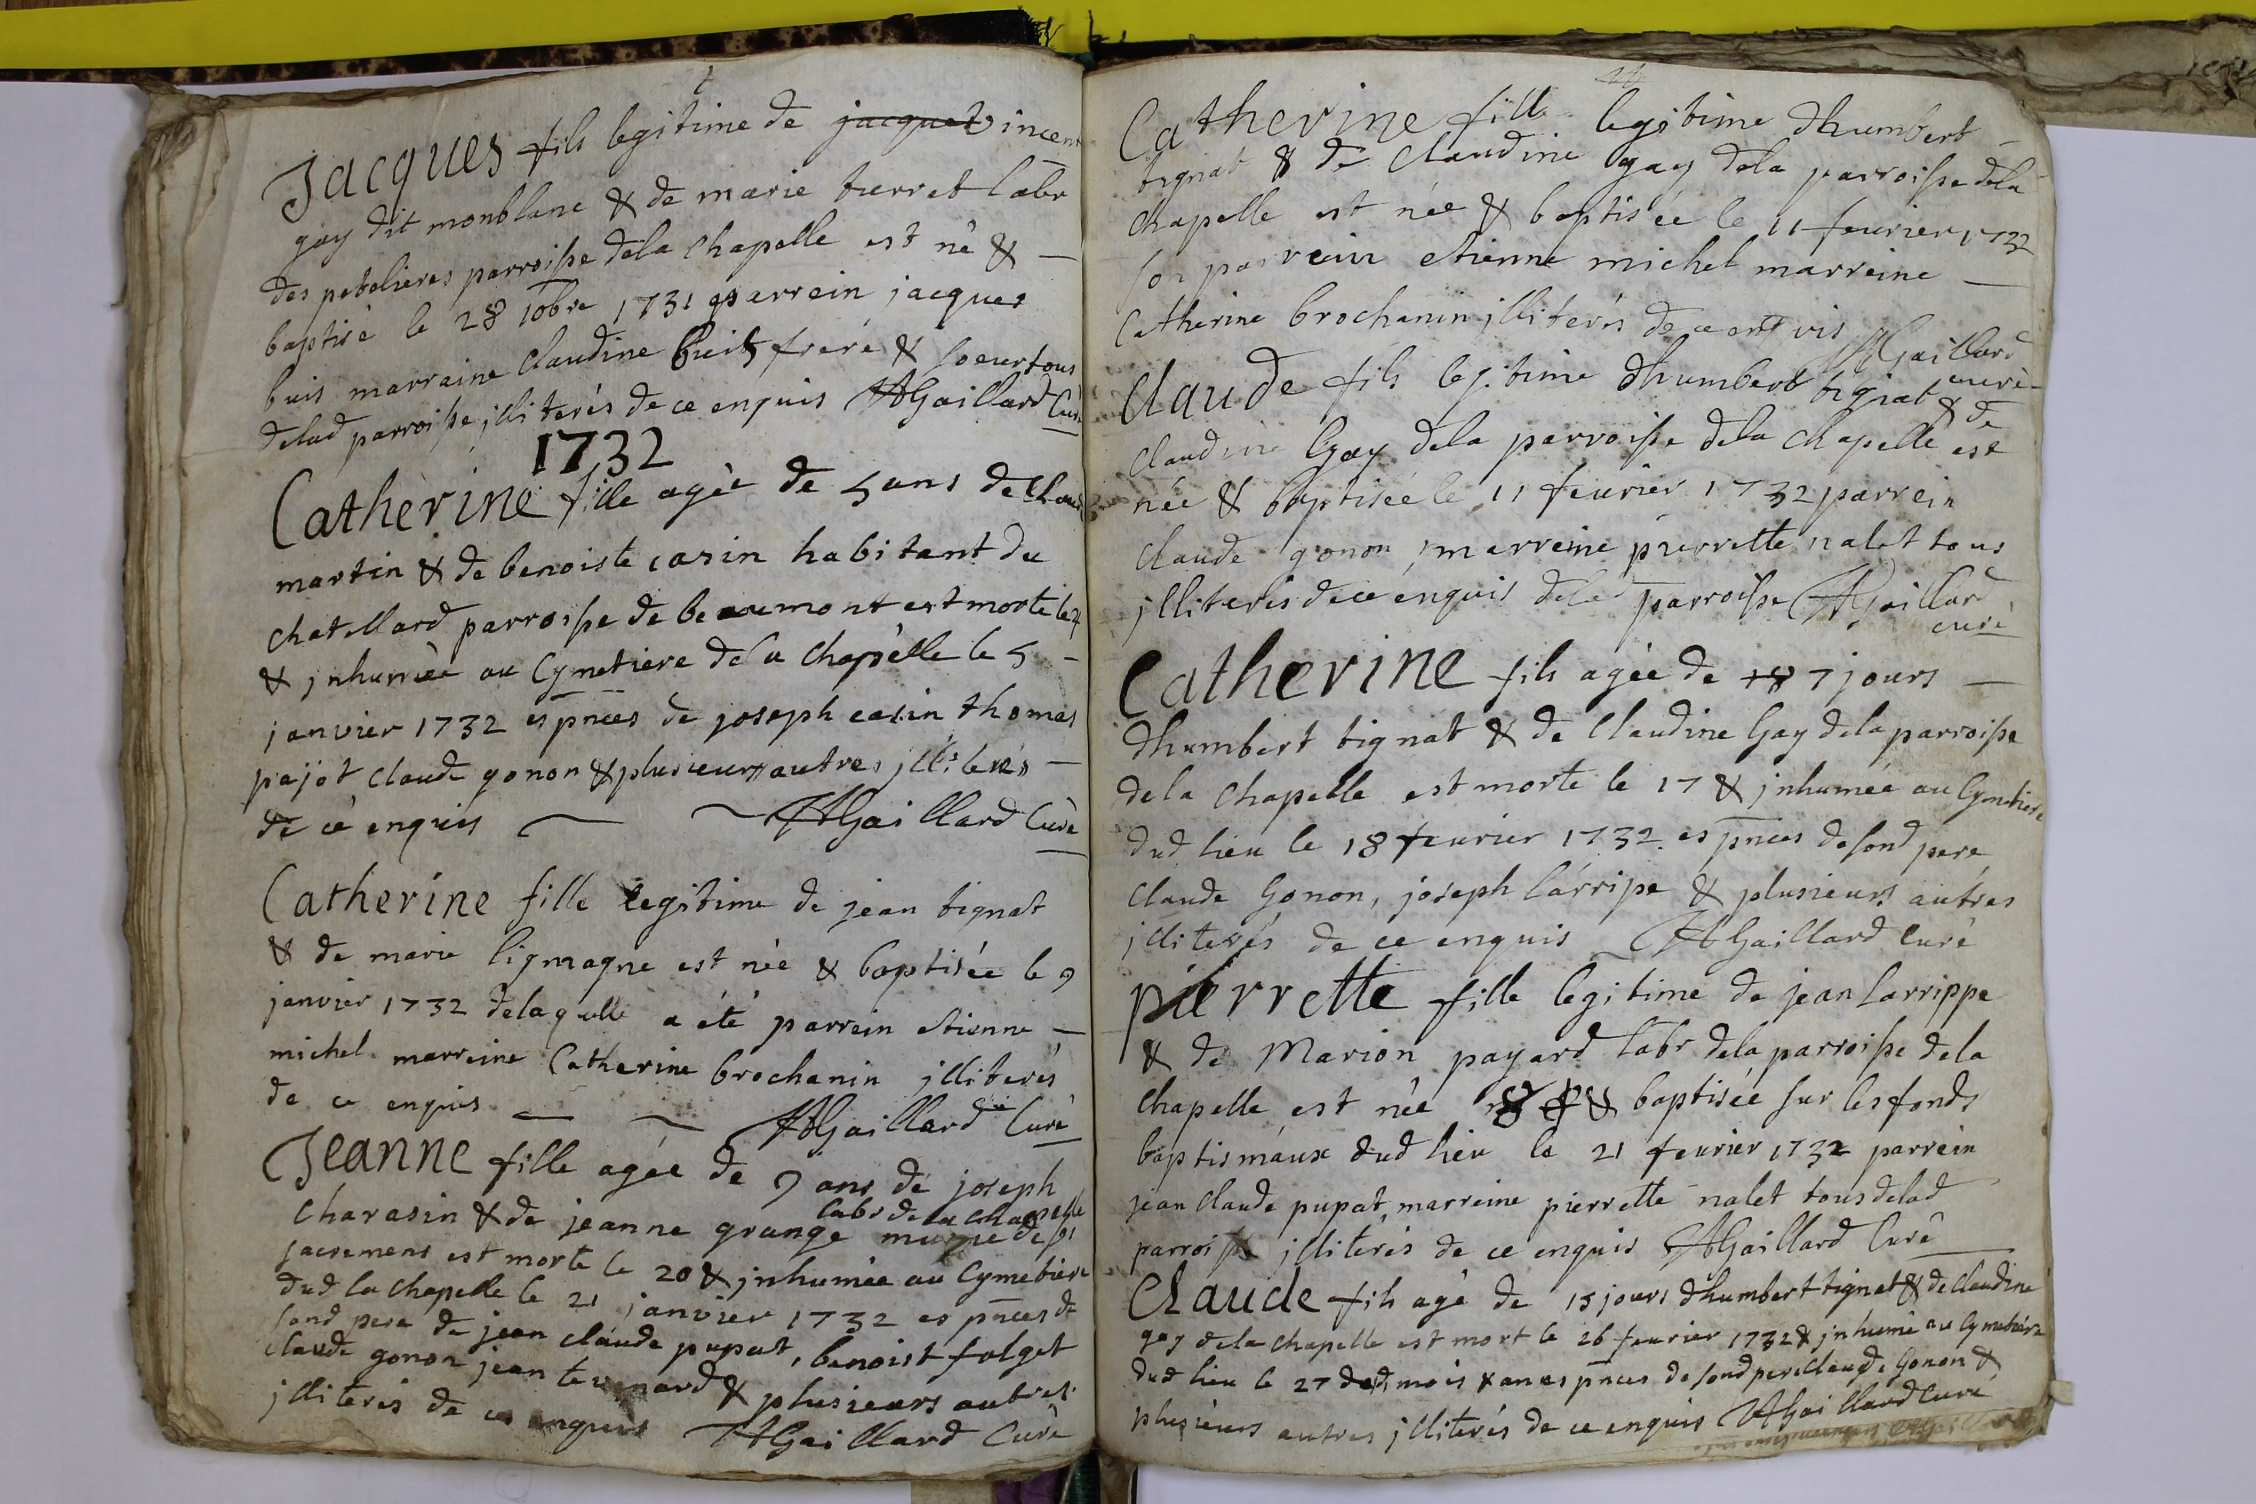 Jacques fils legitime de jacquet vincent
gay dit monblanc & de marie turret labr
des petelieres parroisse dela chapelle est né &
baptisé le 28 10bre 1731 parrein jacques
buis marraine Claudine buis frere & soeur tous
delad parroisse jlliterés de ce enquis AGaillard Curé
1732
Catherine fille agèe de 5 ans de Claude
martin & de benoiste casin habitant du
chatellard parroisse de beaumont est morte le 4
& jnhumèe au Cymetiere dela Chapelle le 5
janvier 1732 es pnces de joseph casin thomas
pajot claude gonon & plusieurs autres jlliterés
de cè enquis AGaillard Curé
Catherine fille legitime de jean tignat
& de marie ligmagne est née & baptisée le 9
janvier 1732 delaquelle a été parrein etienne
michel marreine Catherine brochanin jlliterés
de ce enquis AGaillard Curé
Jeanne fille agée de 9 ans de joseph
labr de la chapelle
charasin & de jeanne grange munie de ses
sacremens est morte le 20 & jnhumèe au Cymetiere
dud la chapelle le 21 janvier 1732 es pnces de
sond pere de jean claude pupat, benoist folget
claude gonon jean & plusieurs autres
jlliterés de ce enquis AGaillard Curé
Catherine fille legitime dhumbert
tignat & de Claudine gay dela parroisse dela
chapelle est née & baptisée le 11 feurier 1732
son parrein etienne michel marreine
Catherine brochanin jlliterés de ce enquis AGaillard
curè
Claude fils legitime dhumbert tignat & de
claudine Gay dela parroisse dela chapelle est
née & baptiseé le 11 feurier 1732 parrein
claude gonon, marreine pierrette nalet tous
jlliterés de ce enquis delad parroisse AGaillard
curé
Catherine fils agée de 18 7 jours
dhumbert tignat & de Claudine Gay dela parroisse
dela chapelle est morte le 17 & jnhumée au Cymetiere
dud lieu le 18 feurier 1732. es pnces de sond pere
Claude Gonon, joseph larripe & plusieurs autres
jlliterés de ce enquis AGaillard Curè
pierrette fille legitime de jean larrippe
& de Marion payard labr dela parroisse dela
chapelle est née & baptisée sur les fonds
baptismaux dud lieu le 21 feurier 1732 parrein
jean claude pupat, marreine pierrette nalet tous delad
parroisse jlliterés de ce enquis AGaillard Curé
Claude fils agé de 15 jours dhumbert tignat & de claudine
gay dela chapelle est mort le 26 feurier 1732 & jnhumé au Cymetiere
dud lieu le 27 desd mois & an es pnces de sond pere Claude Gonon &
plusieurs autres jlliterés de ce enquis AGaillard Curé